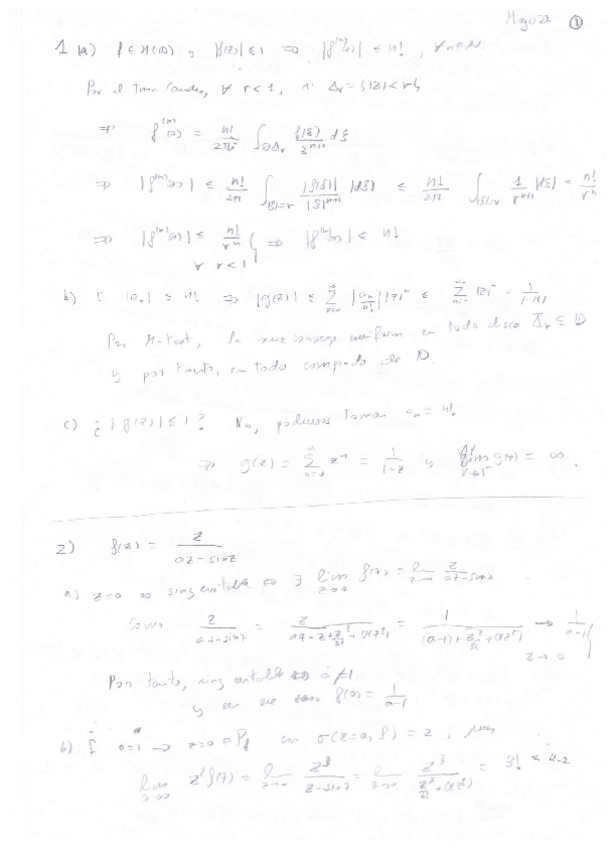 Mayo 22 ①
1 (a) f ∈ H(D) y |f(z)| ≤ 1 ⇒ |f⁽ⁿ⁾(0)| ≤ n!, ∀n∈N.
Por el Cauchy, ∀ r<1, Δ_r = {|z|<r}
⇒ f⁽ⁿ⁾(0) = n!/2πi ∫_∂Δr f(ξ)/ξⁿ⁺¹ dξ
⇒ |f⁽ⁿ⁾(0)| ≤ n!/2π ∫_|ξ|=r |f(ξ)|/|ξ|ⁿ⁺¹ |dξ| ≤ n!/2π ∫_|ξ|=r 1/rⁿ⁺¹ |dξ| = n!/rⁿ
⇒ |f⁽ⁿ⁾(0)| ≤ n!/rⁿ } ⇒ |f⁽ⁿ⁾(0)| ≤ n!
∀ r<1
b) |aₙ| ≤ n! ⇒ |g(z)| ≤ Σ |aₙ/n!| |z|ⁿ ≤ Σ |z|ⁿ = 1/(1-|z|)
Por M-test, la serie converge uniform en todo disco Δ̄_r ⊆ D
y por tanto, en todo compacto de D.
c) ¿|g(z)| ≤ 1? No, podemos tomar aₙ = n!
⇒ g(z) = Σ zⁿ = 1/(1-z) y lim_r→1⁻ g(r) = ∞.
2) f(z) = z/(az - sin z)
a) z=0 sing evitable ⇔ ∃ lim_z→0 f(z) = lim_z→0 z/(az - sin z)
Como z/(az - sin z) = z/(az - z + z³/3! + o(z³)) = 1/((a-1) + z²/3! + o(z²)) → 1/(a-1)
z→0
Por tanto, sing evitable ⇔ a≠1
y en ese caso f(0) = 1/(a-1)
b) Si a=1 → z=0 ∈ P_f con σ(z=0, f) = 2, pues
lim_z→0 z² f(z) = lim_z→0 z³/(z - sin z) = lim_z→0 z³/(z³/3! + o(z³)) = 3! = a₋₂